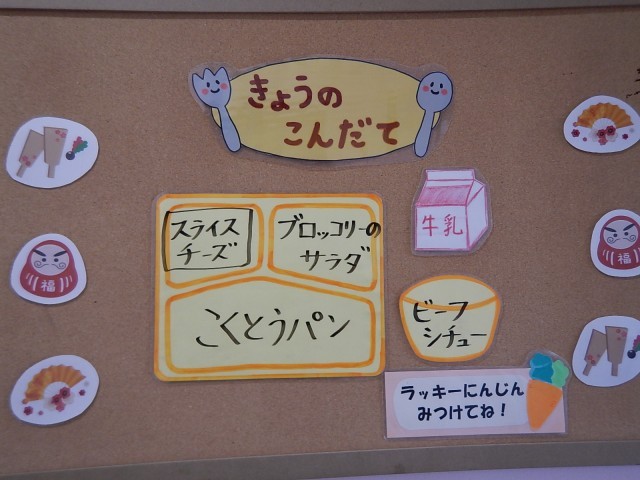 きょうの
こんだて
スライス
チーズ
ブロッコリーの
サラダ
牛乳
こくとうパン
ビーフ
シチュー
ラッキーにんじん
みつけてね!
福
福